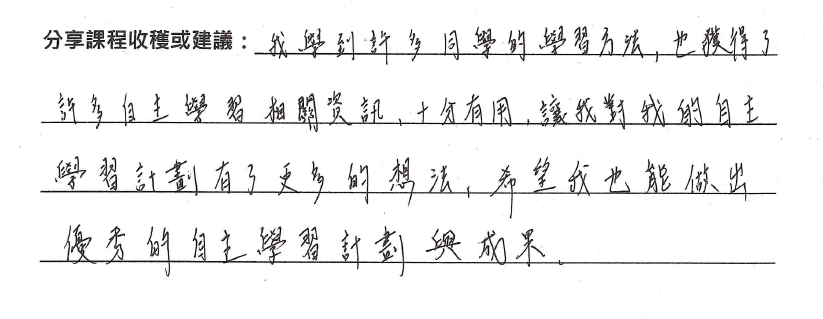 分享課程收穫或建議：我學到許多同學的學習方法，也獲得了
許多自主學習相關資訊，十分有用，讓我對我的自主
學習計劃有了更多的想法，希望我也能做出
優秀的自主學習計劃與成果。